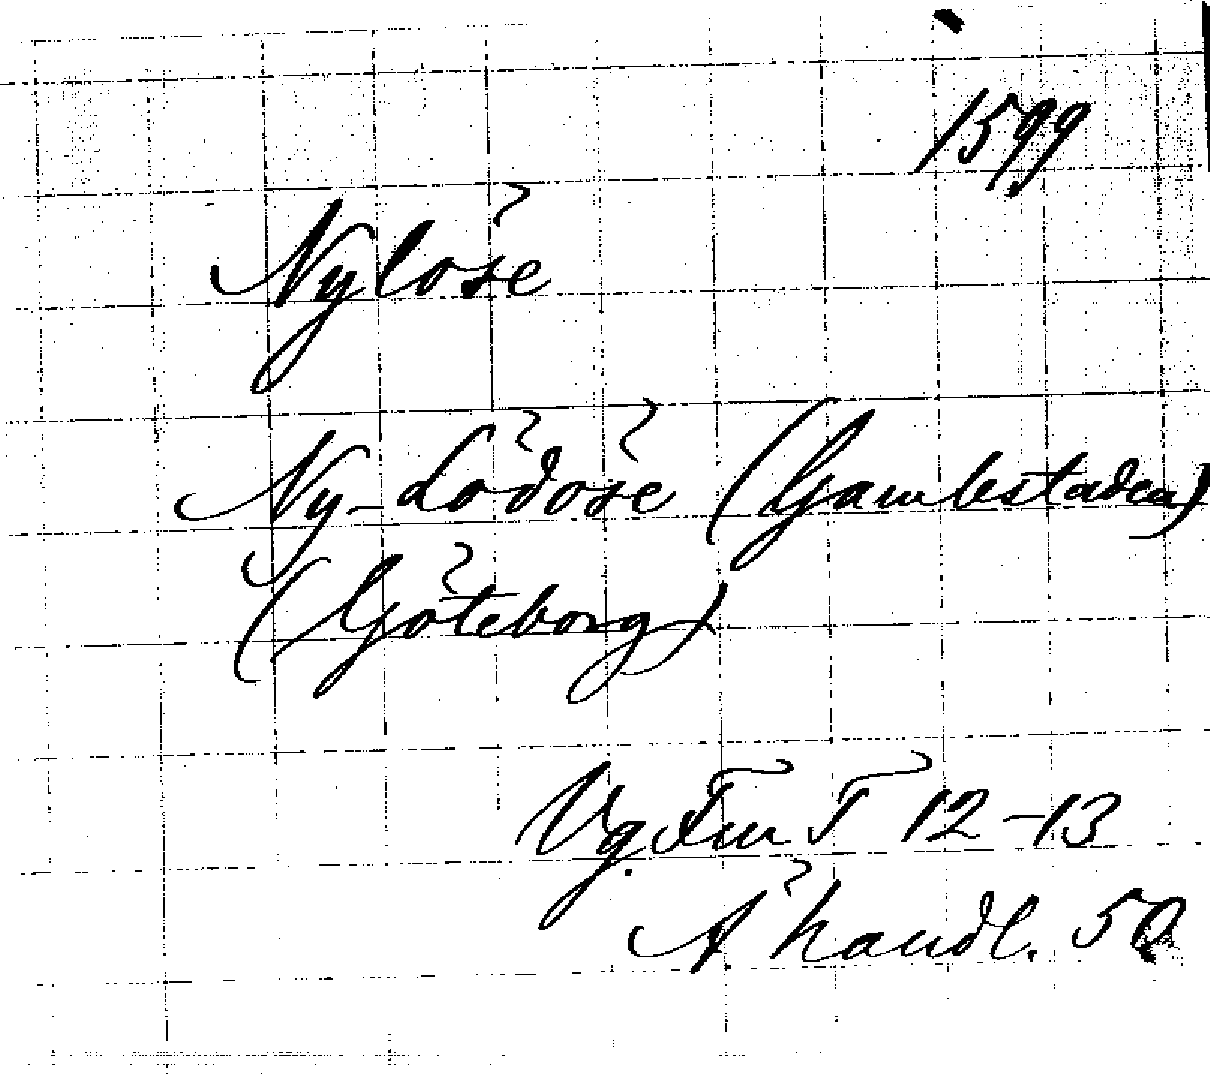 1599
Nylöse
Ny-Lödöse (Gamlestaden)
(Göteborg)
Vg. Fm T 12-13
Å handl. 50